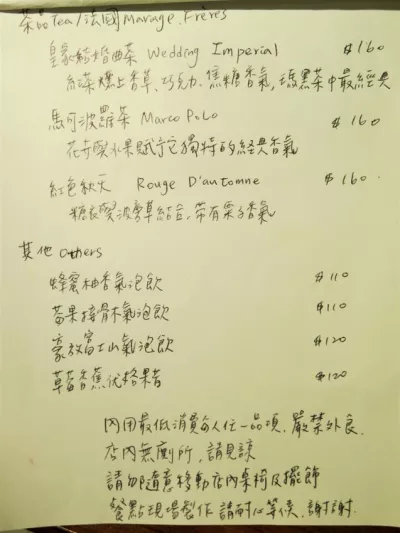 茶品Tea/法國Mariage Frères
皇家結婚曲茶 Wedding Imperial $160
紅茶燻上香草、巧克力、焦糖香氣,瑪黑茶中最經典
馬可波羅茶 Marco Polo $160
花卉與水果賦予它獨特的經典香氣
紅色秋天 Rouge D'automne $160
糖衣與波旁草結合,帶有栗子香氣
其他 others
蜂蜜柚香氣泡飲 $110
莓果接骨木氣泡飲 $110
豪放富士山氣泡飲 $120
草莓香蕉优格果昔 $120
內用最低消費每人任一品項、嚴禁外食
店內無廁所,請見諒
請勿隨意移動店內桌椅及擺飾
餐點現場製作 請耐心等候,謝謝.